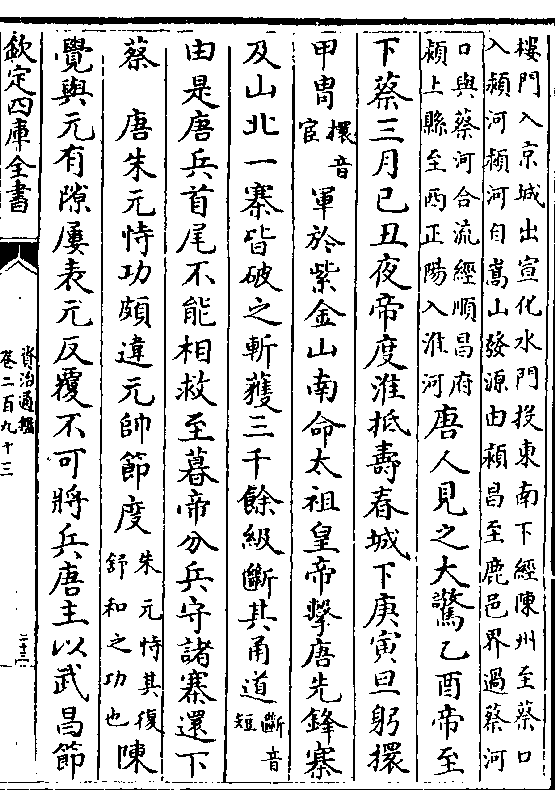 樓門入京城出宣化水門投東南下經陳州至蔡口
入潁河潁河自嵩山發源由潁昌至鹿邑界過蔡河
口與蔡河合流經順昌府
潁上縣至西正陽入淮河
唐人見之大驚乙酉帝至
下蔡三月己丑夜帝度淮抵壽春城下庚寅旦躬擐
甲胄
擐音
宦
軍於紫金山南命太祖皇帝擊唐先鋒寨
及山北一寨皆破之斬獲三千餘級斷其甬道
斷音
短
由是唐兵首尾不能相救至暮帝分兵守諸寨還下
蔡　唐朱元恃功頗違元帥節度
朱元恃其復
舒和之功也
陳
覺與元有隙屢表元反覆不可將兵唐主以武昌節
欽定四庫全書
資治通鑑
卷二百九十三
二十三